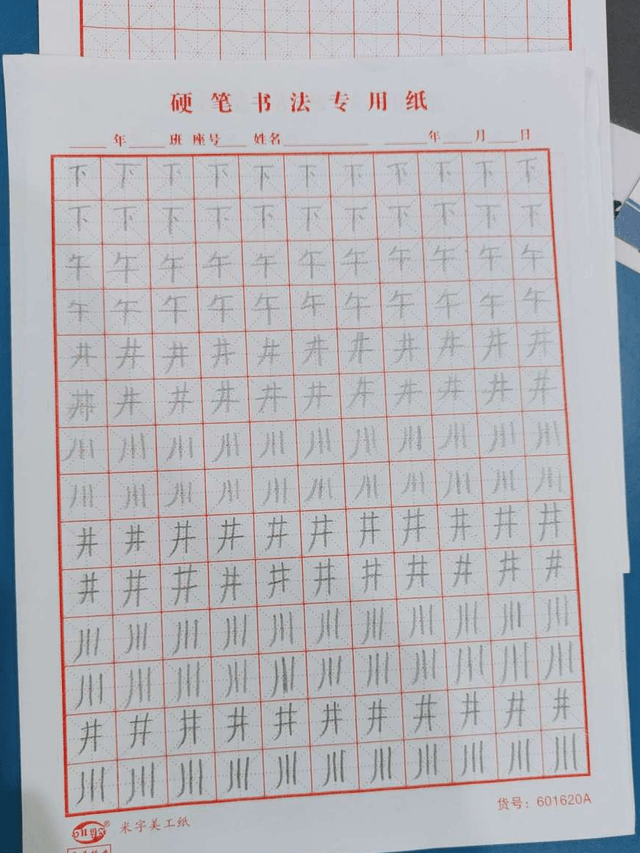 硬笔书法专用纸
年 班 座号 姓名 年 月 日
下下下下下下下下下下下
下下下下下下下下下下下
午午午午午午午午午午午
午午午午午午午午午午午
井井井井井井井井井井井
井井井井井井井井井井井
川川川川川川川川川川川
川川川川川川川川川川川
井井井井井井井井井井井
井井井井井井井井井井井
川川川川川川川川川川川
川川川川川川川川川川川
井井井井井井井井井井井
川川川川川川川川川川川
货号：601620A
米字美工纸